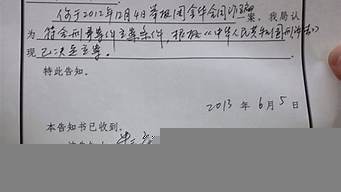 你于2012年12月4日举报周金华合同诈骗案，我局认
为符合刑事案件立案条件，根据《中华人民共和国刑诉法》
现已决定立案
特此告知。
2013年6月5日
本告知书已收到。